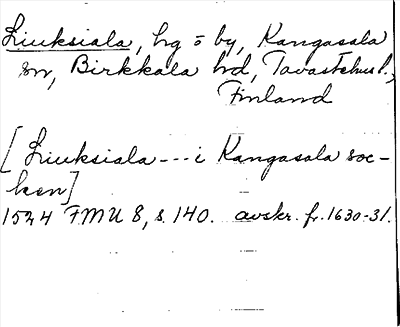 Liuksiala, hg o by, Kangasala
sn, Birkkala hd, Tavastehus l.,
Finland
[Liuksiala --- i Kangasala soc-
ken]
1524 FMU 8, s. 140. avskr. fr. 1630-31.